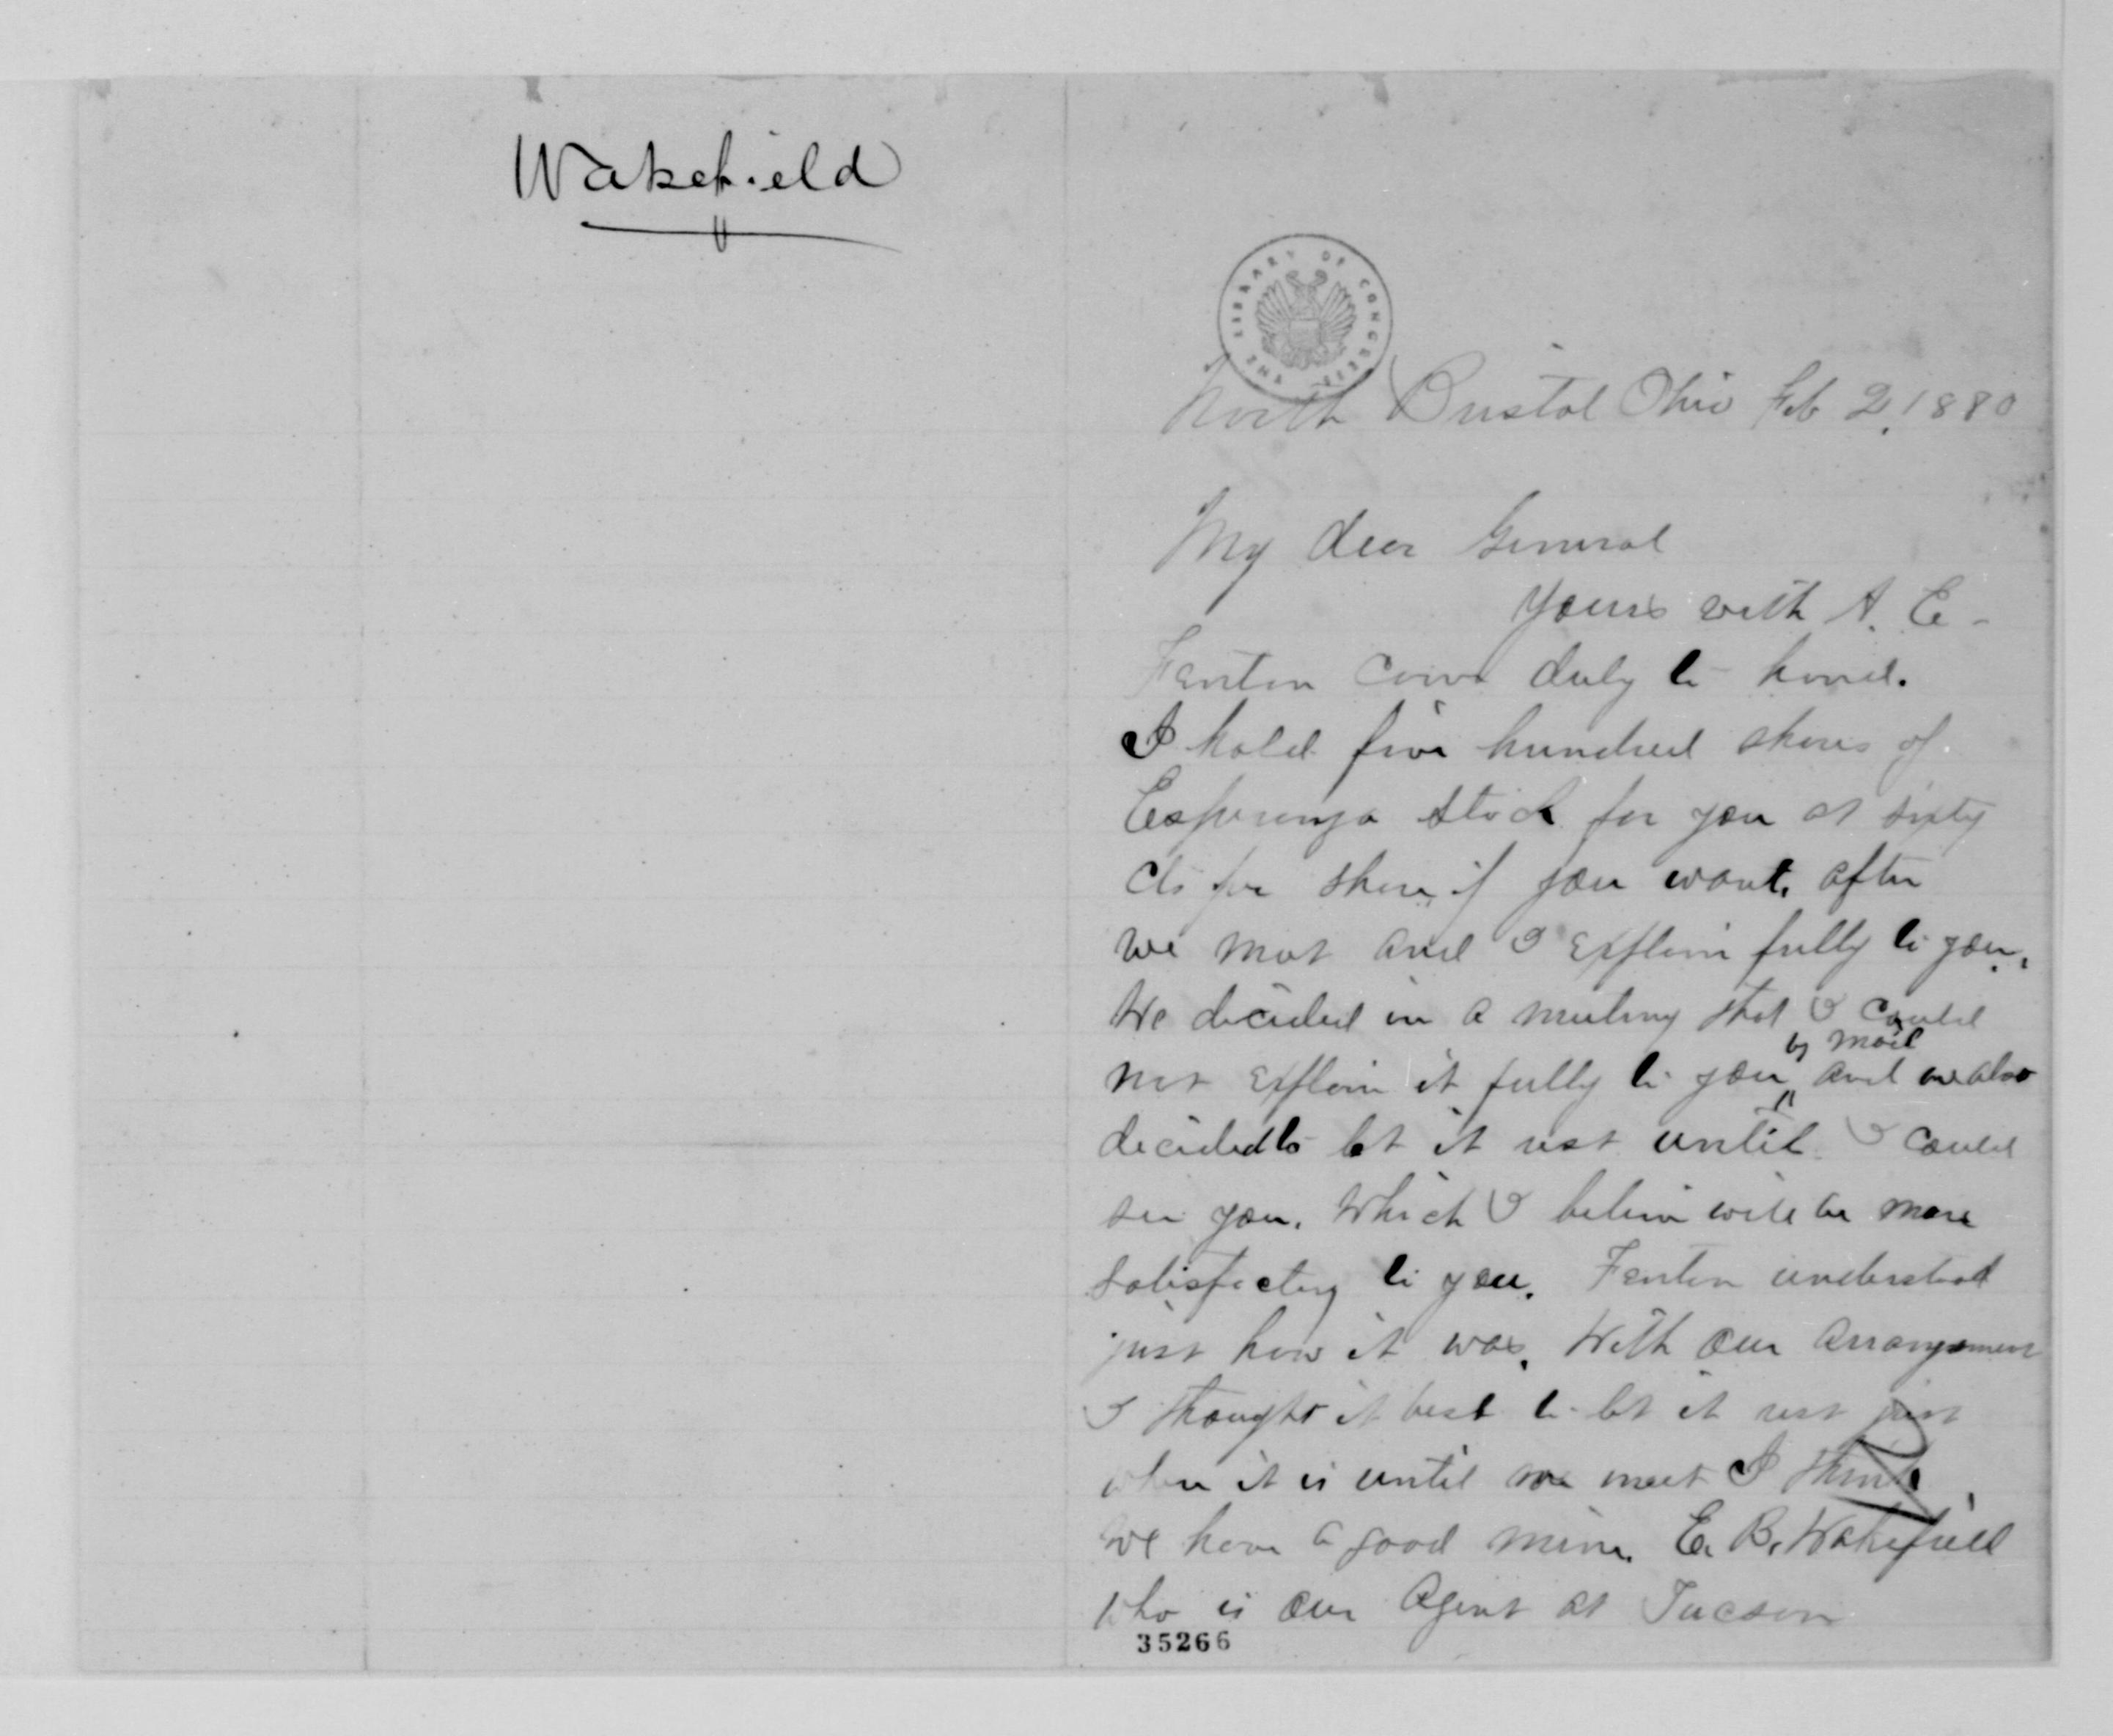 Wakefield
THE LIBRARY OF CONGRESS
North Bristol Ohio Feb 2, 1880
My dear General
Yours with A. E.
Fenton came duly to hand.
I hold five hundred shares of
Esperanza Stock for you at sixty
cts per share, if you want, after
we met and I explain fully to you.
We decided in a meeting that I could
not explain it fully to you by mail and we also
decided to let it rest until I could
see you. Which I believe will be more
satisfactory to you. Fenton understood
just how it was. With our arrangement
I thought it best to let it rest just
where it is until we meet I think
we have a good mine. E. B. Wakefield
who is our Agent at Tucson
35266